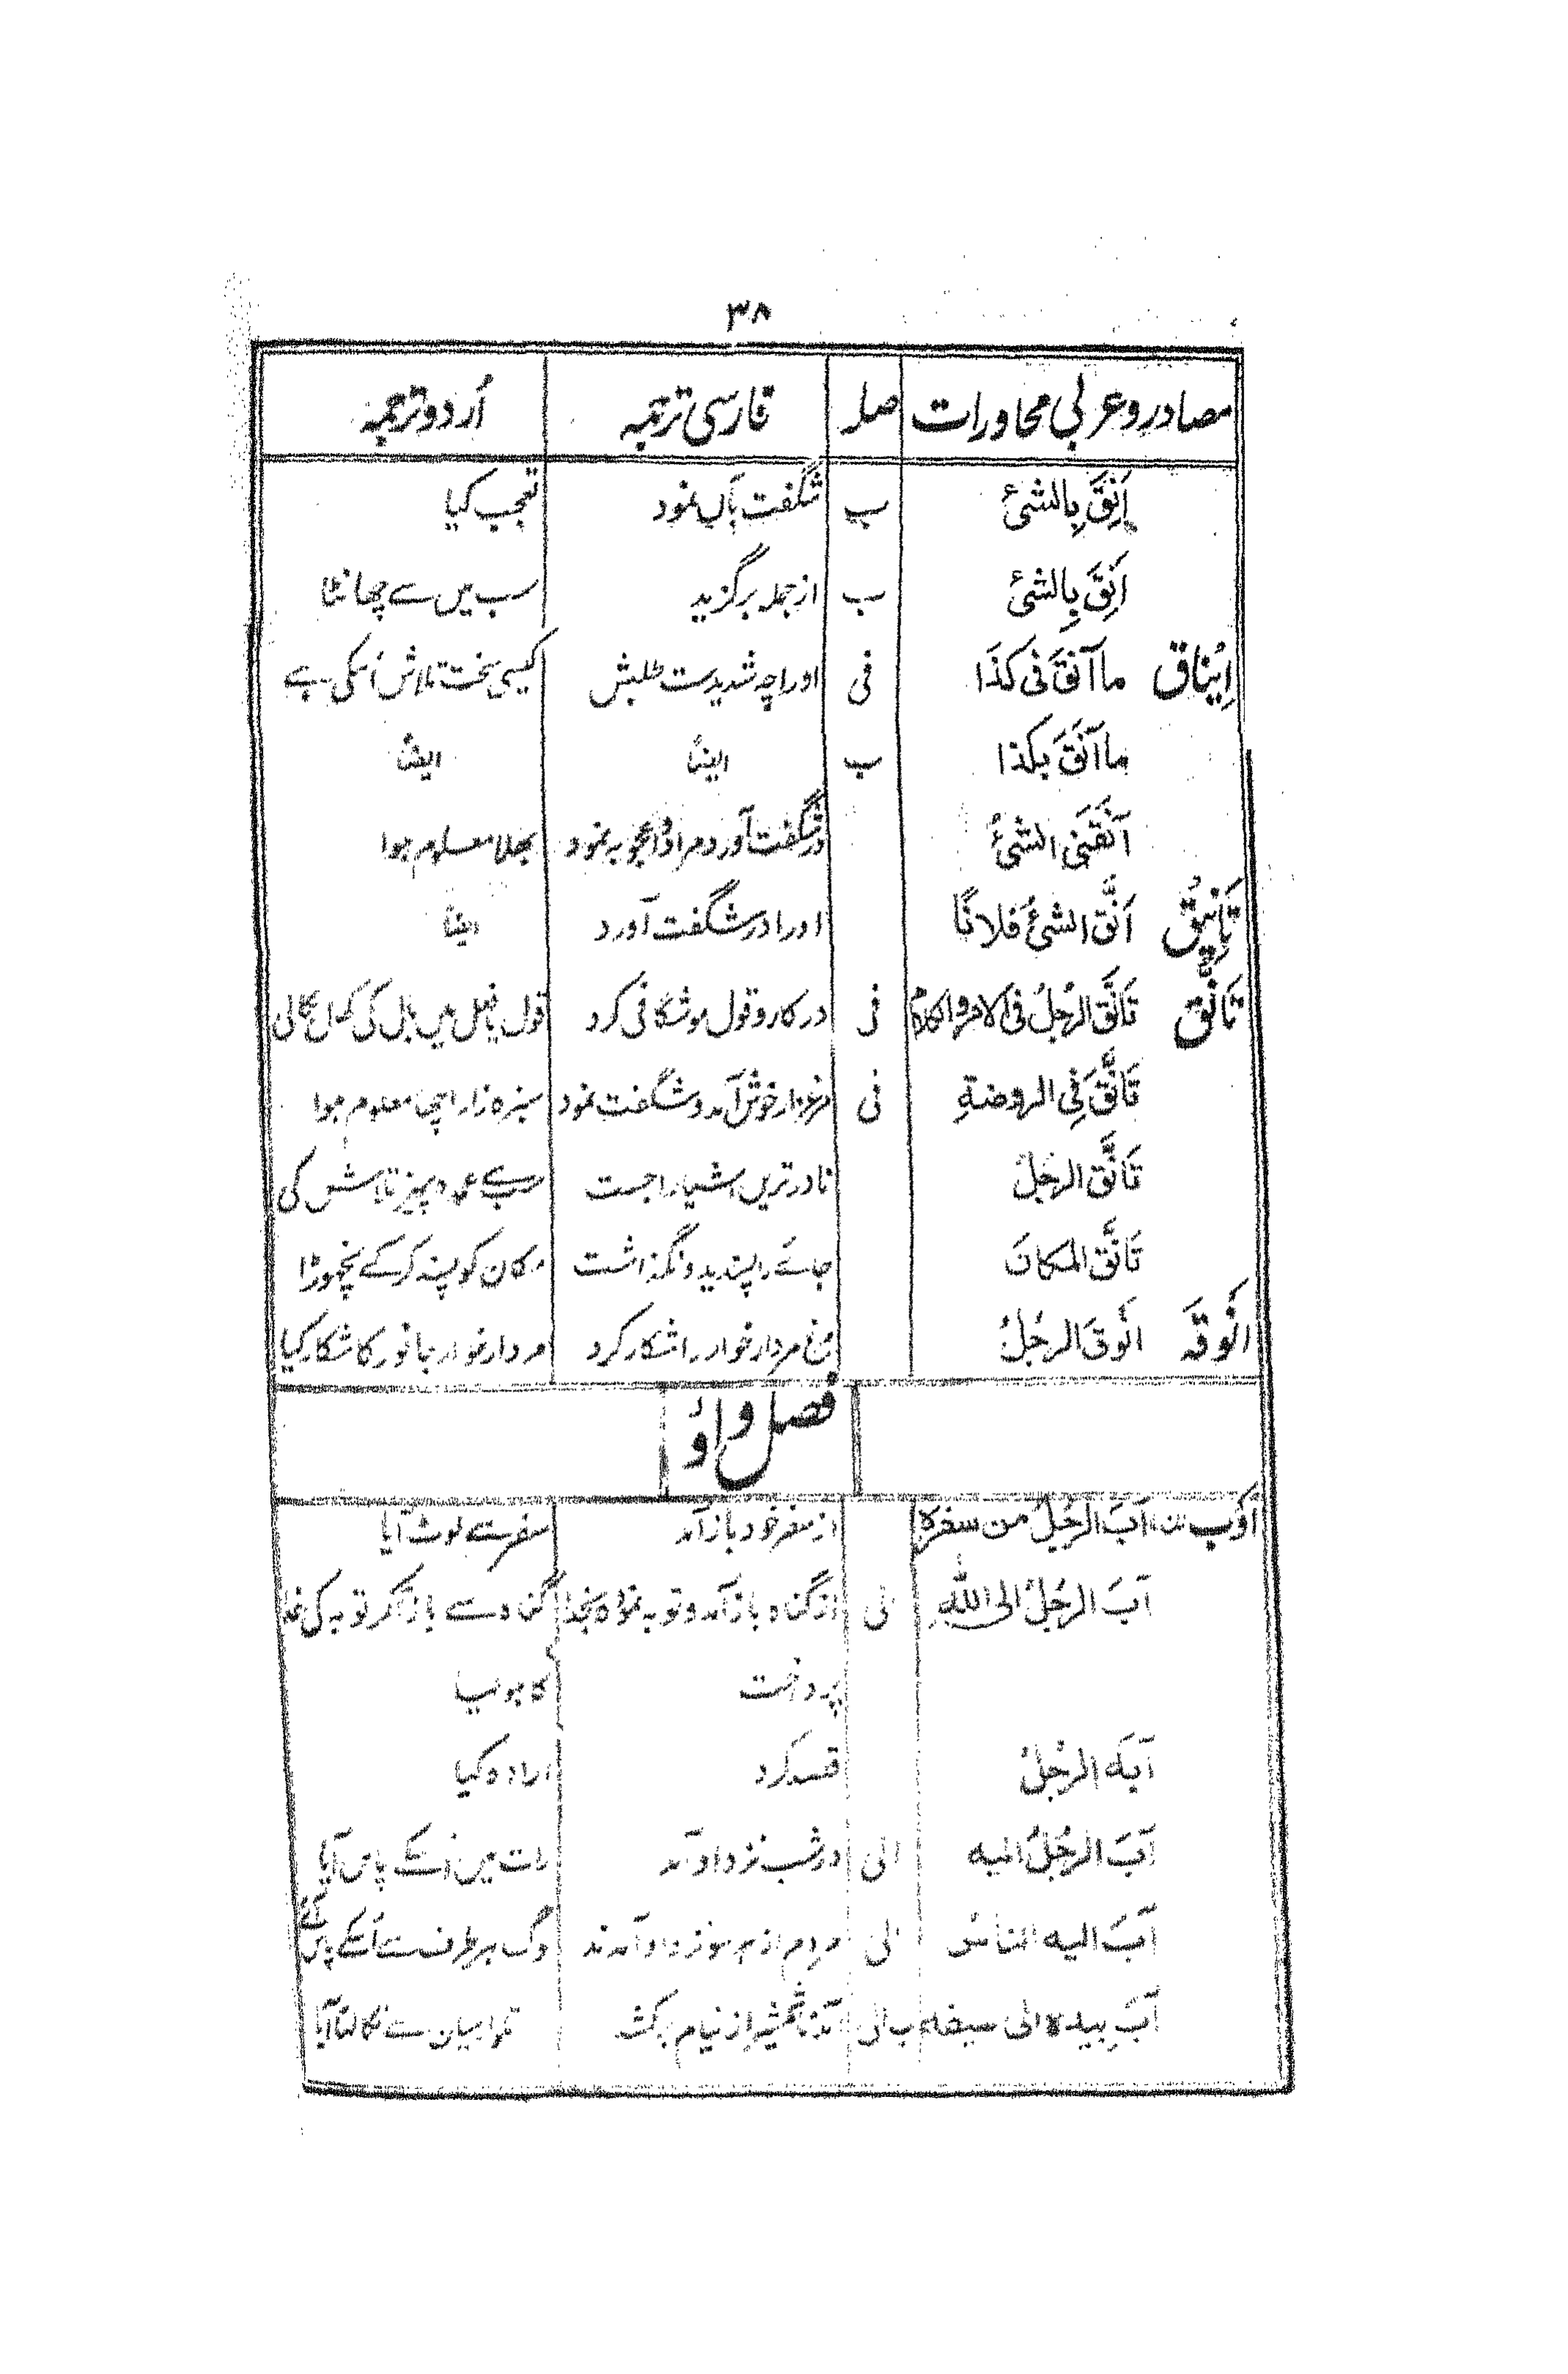 ۳۸
مصادر و عربی محاورات صلہ فارسی ترجمہ اُردو ترجمہ
اَنِقَ بِالشیٔ ب شگفت بآں نمود تعجب کیا
اَنِقَ بِالشیٔ ب از جملہ برگزید سب میں سے چھانٹا
اِیْنَاق ما آنَقَ فی کَذَا فی اورا چہ شدیدست طلبش کیسی سخت تلاش اُسکی ہے
ما آنَقَ بکذا ب ایضاً ایضاً
آنَقَنِی الشیٔ درشگفت آورد مرا و اعجوبہ نمود بھلا معلوم ہوا
تَأنِیْق اَنَّقَ الشیٔ فلانًا اورا درشگفت آورد ایضاً
تَأَنُّق تَأَنَّقَ الرجُلُ فی الامر و الکلام فی در کار و قول موشگافی کرد قول یا فعل میں بال کی کھال نکالی
تَأَنَّقَ فِی الروضةِ فی مرغزار خوش آمد و شگفت نمود سبزہ زار اچھا معلوم ہوا
تَأَنَّقَ الرجُلُ نادر ترین اشیا را جست سب سے عمدہ چیز تلاش کی
تَأَنَّقَ المکانَ جائے را پسندید و نگذاشت مکان کو پسند کرکے نچھوڑا
انَوقَہ انَوقَ الرجُلُ مرغ مردار خوار را شکار کرد مردار خوار جانور کا شکار کیا
فصل واؤ
اَوْب آبَ الرجُلُ من سفرہ از سفر خود باز آمد سفر سے لوٹ آیا
آبَ الرجُلُ الی اللہِ الی از گناہ باز آمد و توبہ نمود بخدا گناہ سے باز آکر توبہ کی خدا
پرداخت کا ہولیا
آبَہ الرجُلُ قصد کرد ارادہ کیا
آبَ الرجُلُ الیہ الی درشب نزد او آمد رات میں اُسکے پاس آیا
آبَ الیہ الناسُ الی مردم از ہر سو نزد او آمدند لوگ ہر طرف سے اُسکے پاس آئے
آبَ بِیدہ الی سیفہ ب الی آمد تا شمشیر از نیام برکشد تلوار میان سے نکالتا آیا